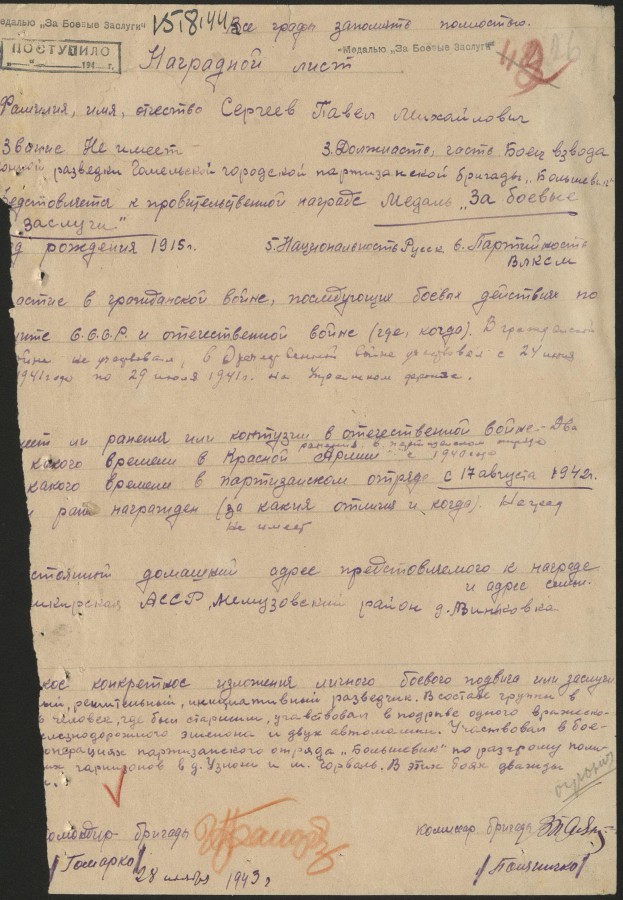 медалью „За Боевые Заслуги" 158/44 Все графы заполнять полностью.
ПОСТУПИЛО -Медалью „За Боевые Заслуги"
194 г.
Наградной лист
Фамилия, имя, отчество Сергеев Павел Михайлович
Звание Не имеет 3. Должность, часть Боец взвода
конной разведки Гомельской городской партизанской бригады „Большевик"
едставляется к правительственной награде Медаль „За боевые
заслуги"
од рождения 1915 г. 5. Национальность Русск 6. Партийность
ВЛКСМ
астие в гражданской войне, последующих боевых действиях по
ите С.С.С.Р. и отечественной войне (где, когда). В гражданской
войне не участвовал, в Отечественной войне участвовал с 24 июня
1941 года по 29 июля 1941 г. на Украинском фронте.
еет ли ранения или контузии в отечественной войне - Два
ранения в партизанском отряде
какого времени в Красной Армии с 1940 года
какого времени в партизанском отряде с 17 августа 1942 г.
и рани награжден (за какия отличия и когда). Наград
не имеет
стоянной домашний адрес представляемого к награде
и адрес семьи.
шкирская АССР, район д.
кое конкретное изложения личного боевого подвига или заслуги
решительный, инициативный разведчик. В составе группы в
человек, где был старшим, участвовал в подрыве одного вражеско-
елезнодорожного эшелона и двух автомашин. Участвовал в бое-
операциях партизанского отряда „Большевик" по разгрому поли
их гарнизонов в д. Узноги и м. Горваль. В этих боях дважды
омандир бригады комиссар бригады
/Гомарко/
28 ноября 1943 г.